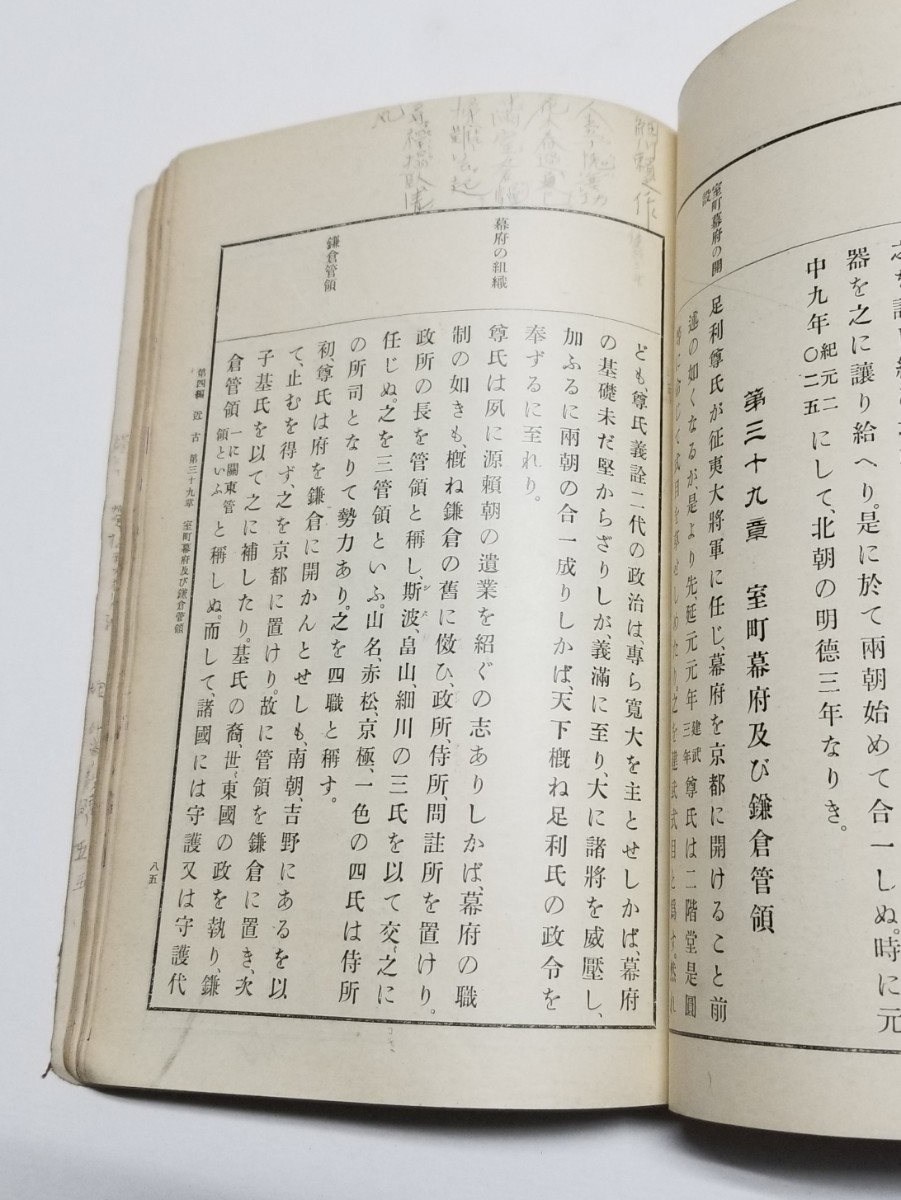 器を之に讓り給へり。是に於て兩朝始めて合一しぬ。時に元
中九年紀元二〇五二にして、北朝の明德三年なりき。
第三十九章 室町幕府及び鎌倉管領
室町幕府の開設
足利尊氏が征夷大將軍に任じ、幕府を京都に開けること前
述の如くなるが、是より先、延元元年建武三年尊氏は二階堂是圓
ども、尊氏義詮二代の政治は、專ら寬大を主とせしかば、幕府
の基礎未だ堅からざりしが、義滿に至り、大に諸將を威壓し、
加ふるに兩朝の合一成りしかば、天下槪ね足利氏の政令を
奉ずるに至れり。
幕府の組織
尊氏は夙に源賴朝の遺業を紹ぐの志ありしかば、幕府の職
制の如きも、槪ね鎌倉の舊に倣ひ、政所、侍所、問註所を置けり。
政所の長を管領と稱し、斯波、畠山、細川の三氏を以て交〻之に
任じぬ。之を三管領といふ。山名、赤松、京極、一色の四氏は侍所
の所司となりて勢力あり。之を四職と稱す。
鎌倉管領
初、尊氏は府を鎌倉に開かんとせしも、南朝、吉野にあるを以
て、止むを得ず、之を京都に置けり。故に管領を鎌倉に置き、次
子基氏を以て之に補したり。基氏の裔、世〻東國の政を執り、鎌
倉管領一に關東管領といふと稱しぬ。而して、諸國には守護又は守護代
第四編 近古 第三十九章 室町幕府及び鎌倉管領
八五